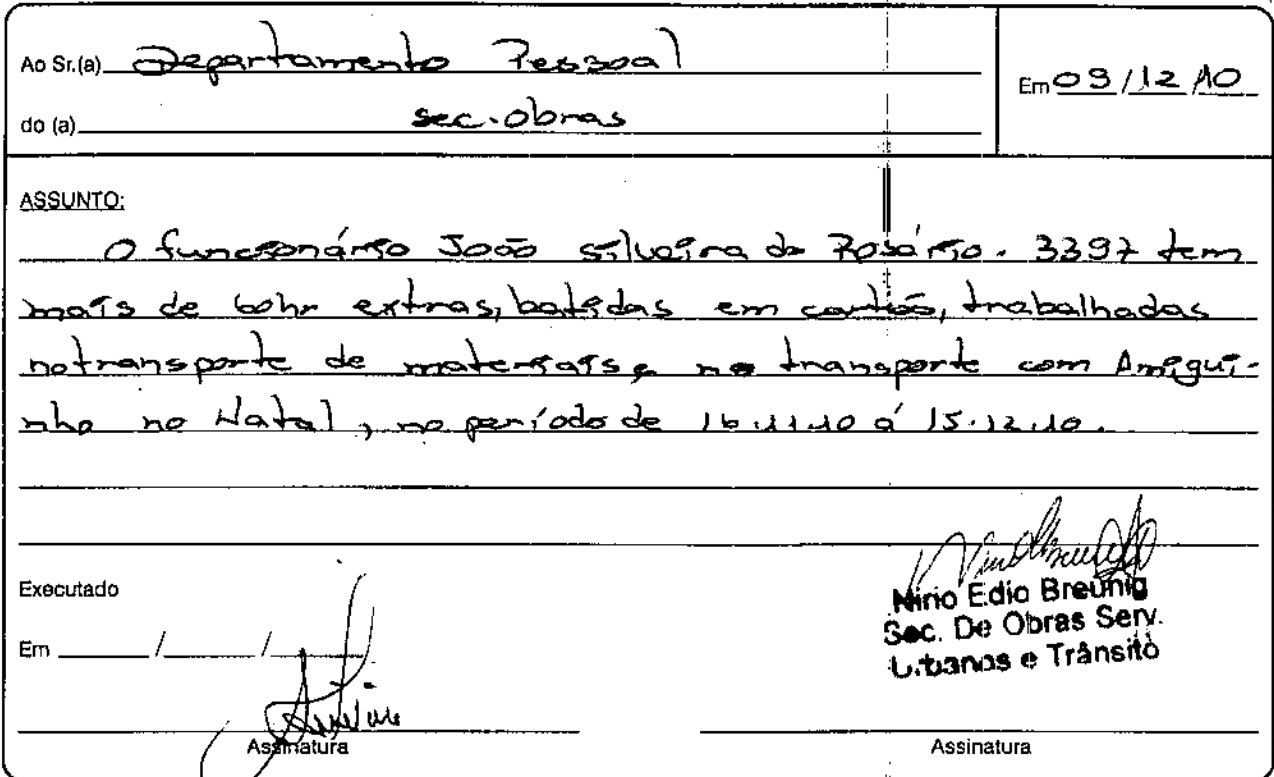 Ao Sr.(a) Departamento Pessoal
Em 09/12/10
do (a) sec. obras
ASSUNTO:
O funcionário João Silveira do Rosário. 3397 tem
mais de 60hr extras, batidas em cartão, trabalhadas
no transporte de materiais e no transporte com Amigui-
nho no Natal, no período de 16.11.10 á 15.12.10.
Executado
Em / /
Nirio Edio Breunig
Sec. De Obras Serv.
Urbanos e Trânsito
Assinatura
Assinatura